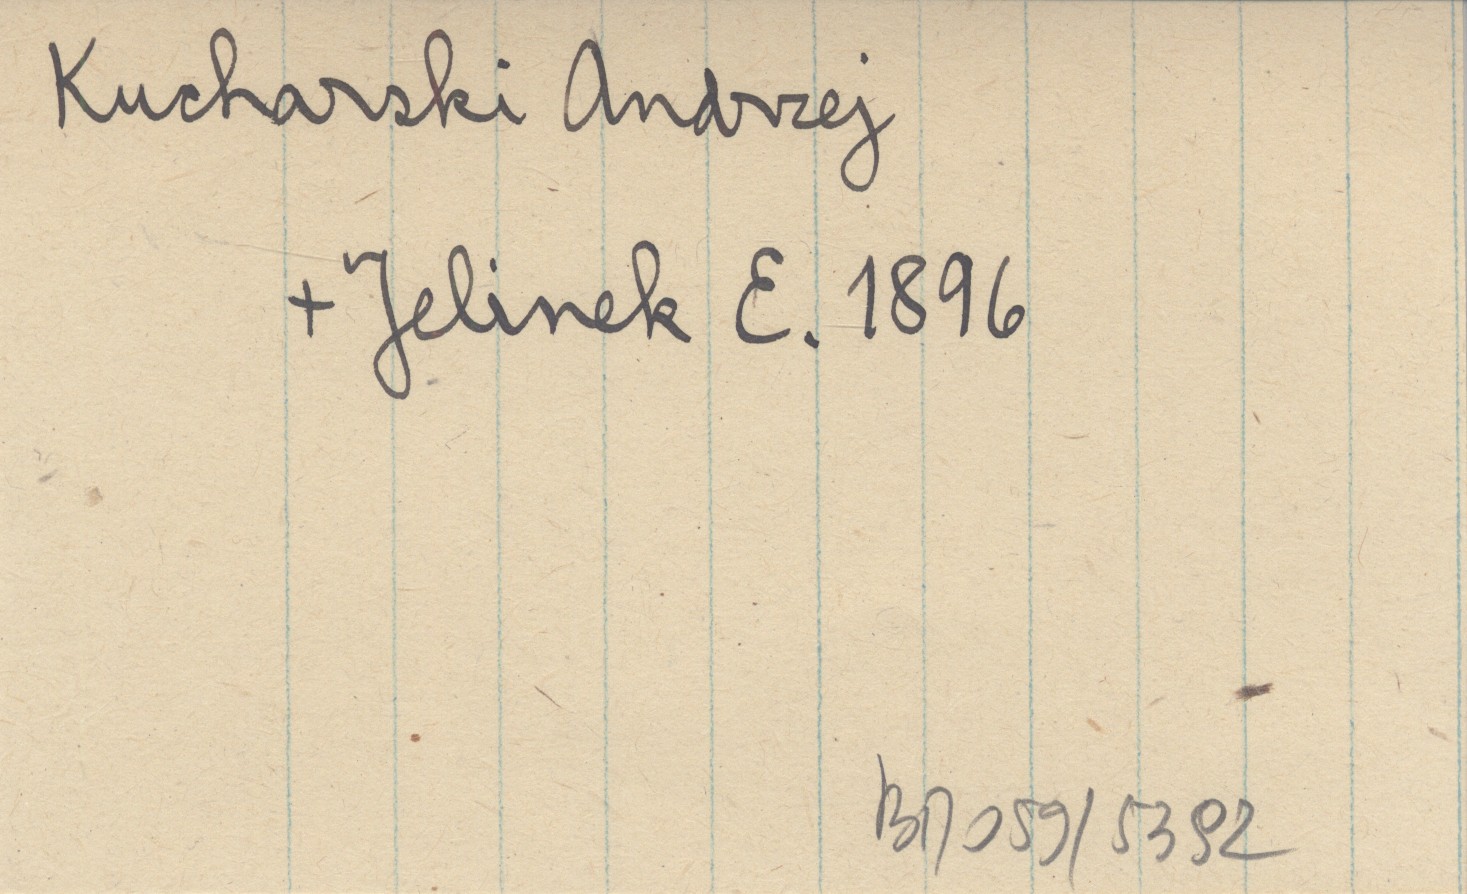 Kucharski Andrzej
+ Jelinek E. 1896
059/5392